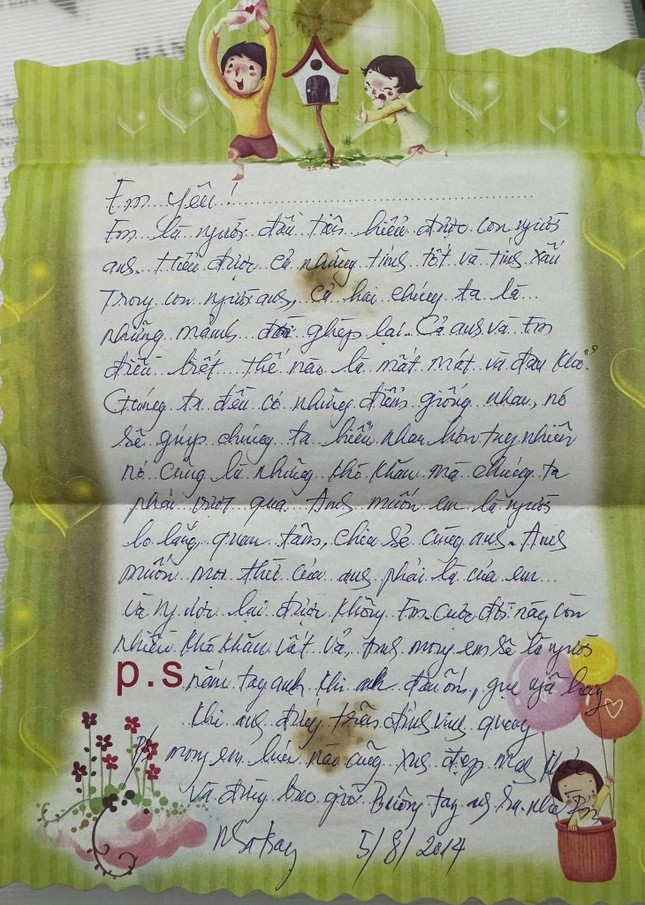 Em yêu!
Em là người đầu tiên hiểu được con người
anh. Hiểu được cả những tính tốt và tính xấu
Trong con người anh, cả hai chúng ta là
những mảnh đời ghép lại. Cả anh và Em
điều biết thế nào là mất mát và đau khổ.
Chúng ta đều có những điểm giống nhau, nó
sẽ giúp chúng ta hiểu nhau hơn tuy nhiên
nó cũng là những khó khăn mà chúng ta
phải vượt qua. Anh muốn em là người
lo lắng, quan tâm, chia sẻ cùng anh. Anh
muốn mọi thứ của anh phải là của em
và ngược lại được không Em cuộc đời này còn
nhiều khó khăn vất vả, Anh mong em sẽ là người
p.s nắm tay anh khi anh đau ốm, gục ngã hay
khi anh đứng trên đỉnh vinh quang
mong em lúc nào cũng xinh đẹp
và đừng bao giờ Buông tay anh Ra nhé Em
5/8/2014